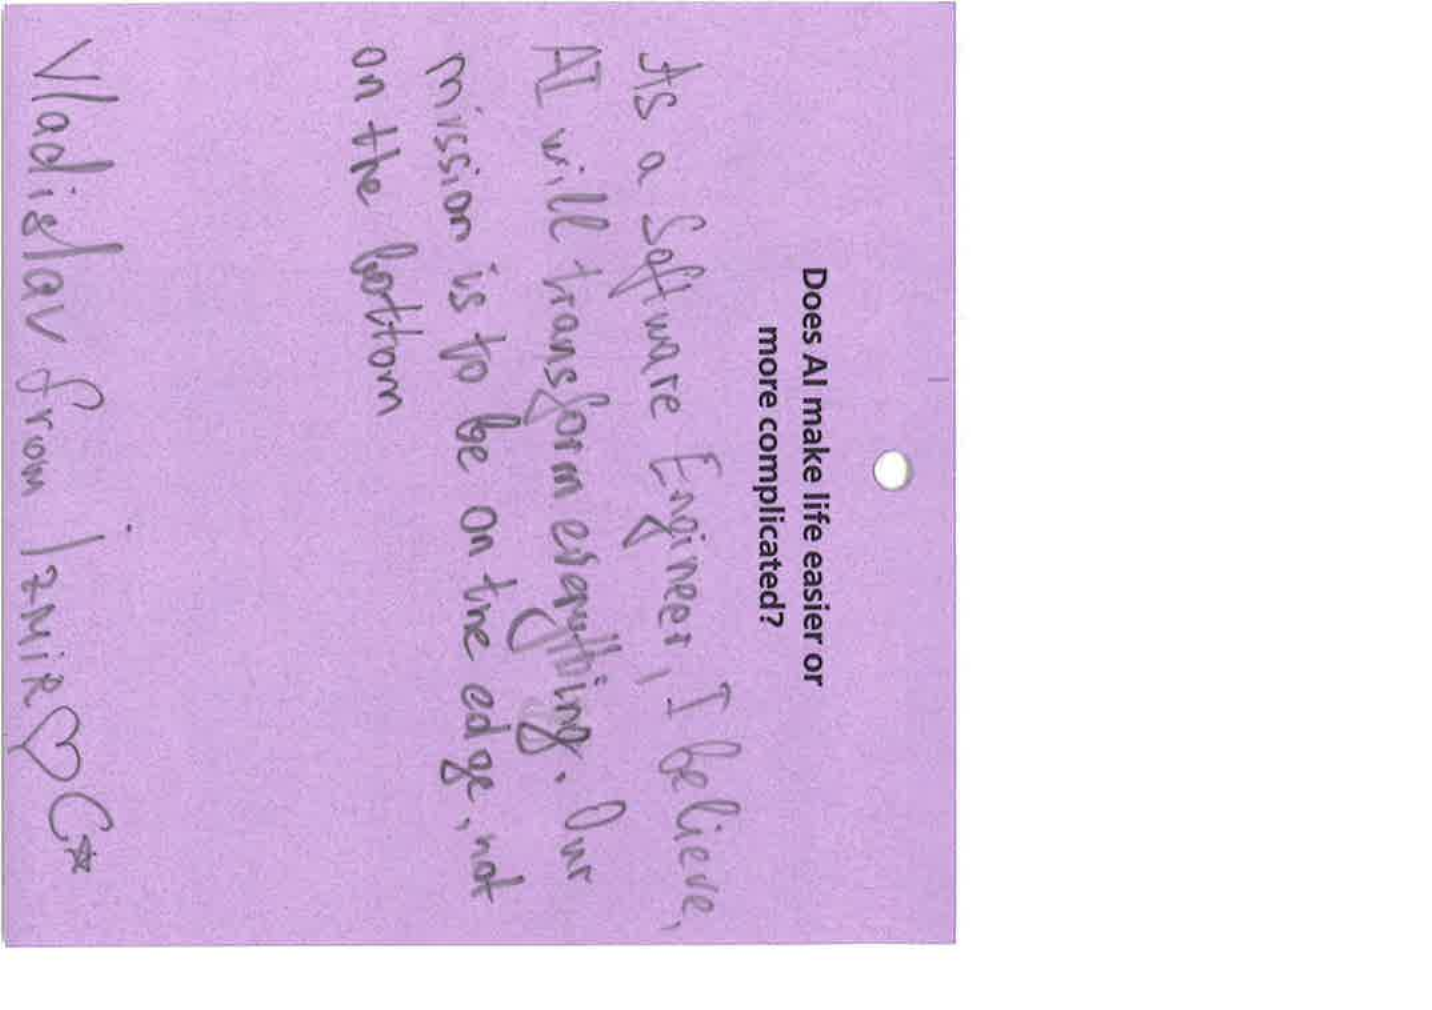 Does AI make life easier or
more complicated?
As a Software Engineer, I believe,
AI will transform everything. Our
mission is to be on the edge, not
on the bottom
Vladislav from IZMIR♡☪